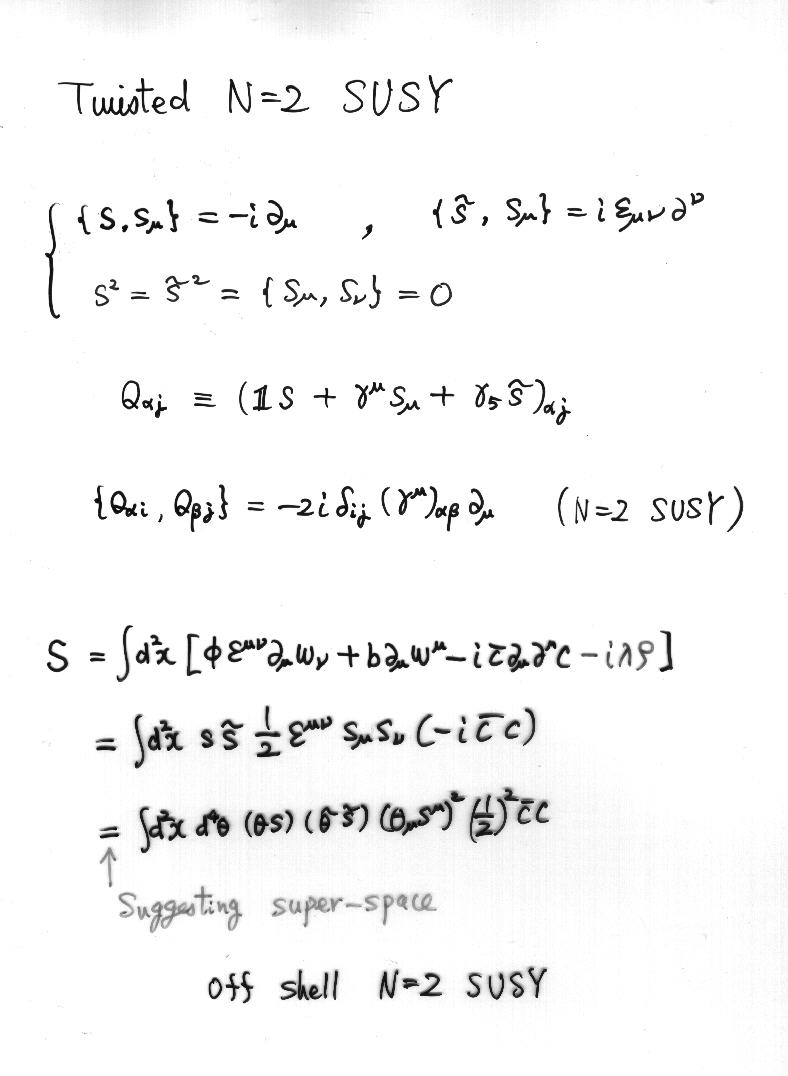 Twisted N=2 SUSY
{S, Sμ} = -i∂μ , {S̃, Sμ} = iεμν∂^ν
S² = S̃² = {Sμ, Sν} = 0
Qαj ≡ (𝟙S + γ^μ Sμ + γ₅S̃)αj
{Qαi, Qβj} = -2i δij (γ^μ)αβ ∂μ (N=2 SUSY)
S = ∫d²x [ϕ ε^μν ∂μ ων + b∂μω^μ - i c̄ ∂μ∂^μ c - iλρ]
= ∫d²x s s̃ ½ ε^μν sμ sν (-i c̄ c)
= ∫d²x d⁴θ (θs) (θ̃ s̃) (θμ s^μ)² (½)² c̄ c
↑
Suggesting super-space
off shell N=2 SUSY